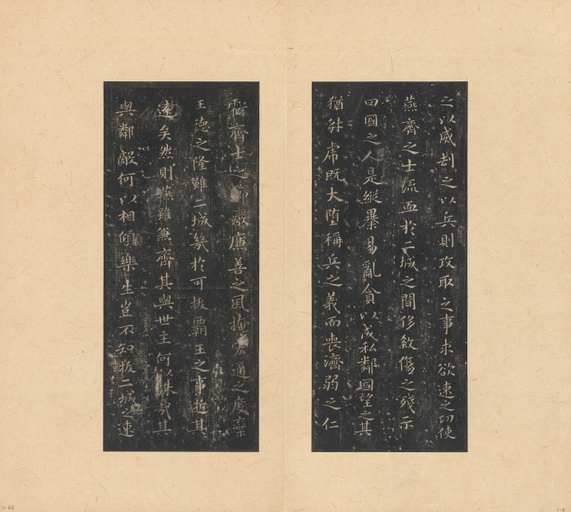 之以威劫之以兵則攻取之事求欲速之功使
燕齊之士流血於二城之間侈敘傷之殘示
四國之人是縱暴易亂貪以成私鄰國望之其
猶豺虎既大墮稱兵之義而喪濟弱之仁
虧齊士之節廢廉善之風掩宏通之度棄
王德之隆雖二城幾於可拔霸王之事逝其
遠矣然則燕雖兼齊其與世主何以殊哉其
與鄰敵何以相傾樂生豈不知拔二城之速